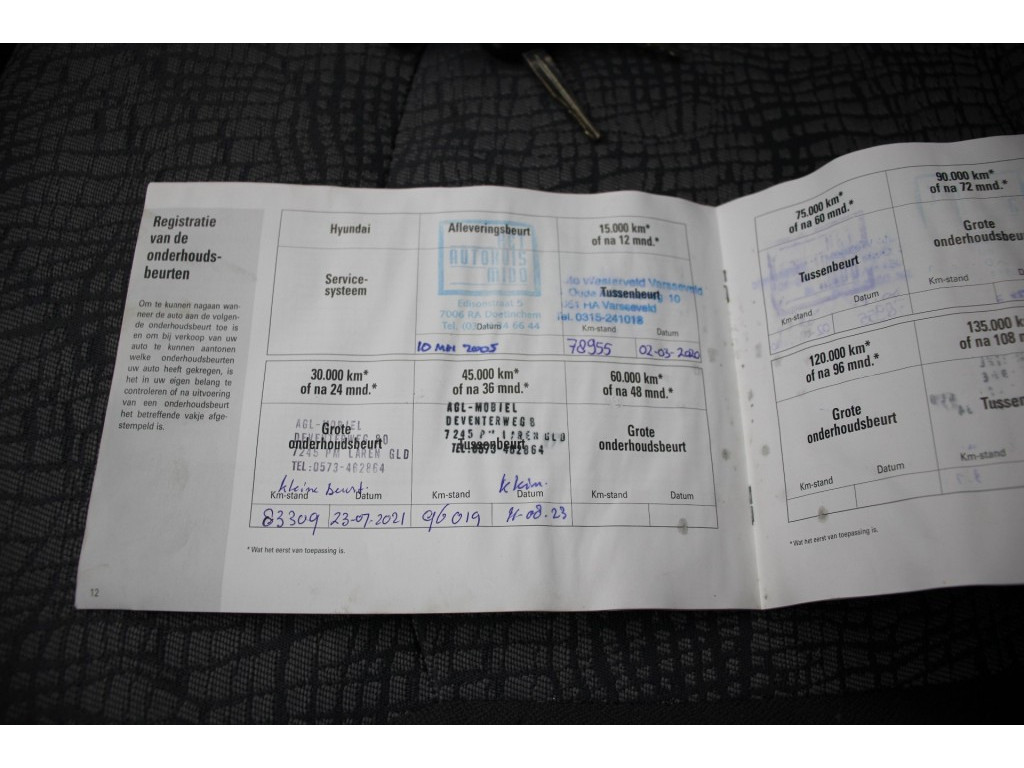 Registratie
van de
onderhouds-
beurten
Om te kunnen nagaan wan-
neer de auto aan de volgen-
de onderhoudsbeurt toe is
en om bij verkoop van uw
auto te kunnen aantonen
welke onderhoudsbeurten
uw auto heeft gekregen, is
het in uw eigen belang te
controleren of na uitvoering
van een onderhoudsbeurt
het betreffende vakje afge-
stempeld is.
12
Hyundai
Service-
systeem
Afleveringsbeurt
AUTOHUIS
Edisonstraat 5
7006 RA Doetinchem
Tel. 4 66 44
Datum
10 MEI 2005
15.000 km*
of na 12 mnd.*
Westerveld Varsseveld
Tussenbeurt 10
HA Varsseveld
Tel. 0315-241018
Km-stand Datum
78955 02-03-2020
30.000 km*
of na 24 mnd.*
AGL-MOBIEL
Grote
DEVENTERWEG
onderhoudsbeurt
7245 PM LAREN GLD
TEL:0573-462864
kleine beurt.
Km-stand Datum
83309 23-07-2021
45.000 km*
of na 36 mnd.*
AGL-MOBIEL
DEVENTERWEG 8
7245 PM LAREN GLD
Tussenbeurt
TEL:0573-462864
klein.
Km-stand Datum
96019 11-08-23
60.000 km*
of na 48 mnd.*
Grote
onderhoudsbeurt
Km-stand Datum
* Wat het eerst van toepassing is.
75.000 km*
of na 60 mnd.*
Tussenbeurt
Km-stand Datum
90.000 km*
of na 72 mnd.*
Grote
onderhoudsbeu
Km-stand
120.000 km*
of na 96 mnd.*
Grote
onderhoudsbeurt
Km-stand Datum
135.000 k
of na 108 m
Tussen
Km-stand
* Wat het eerst van toepassing is.